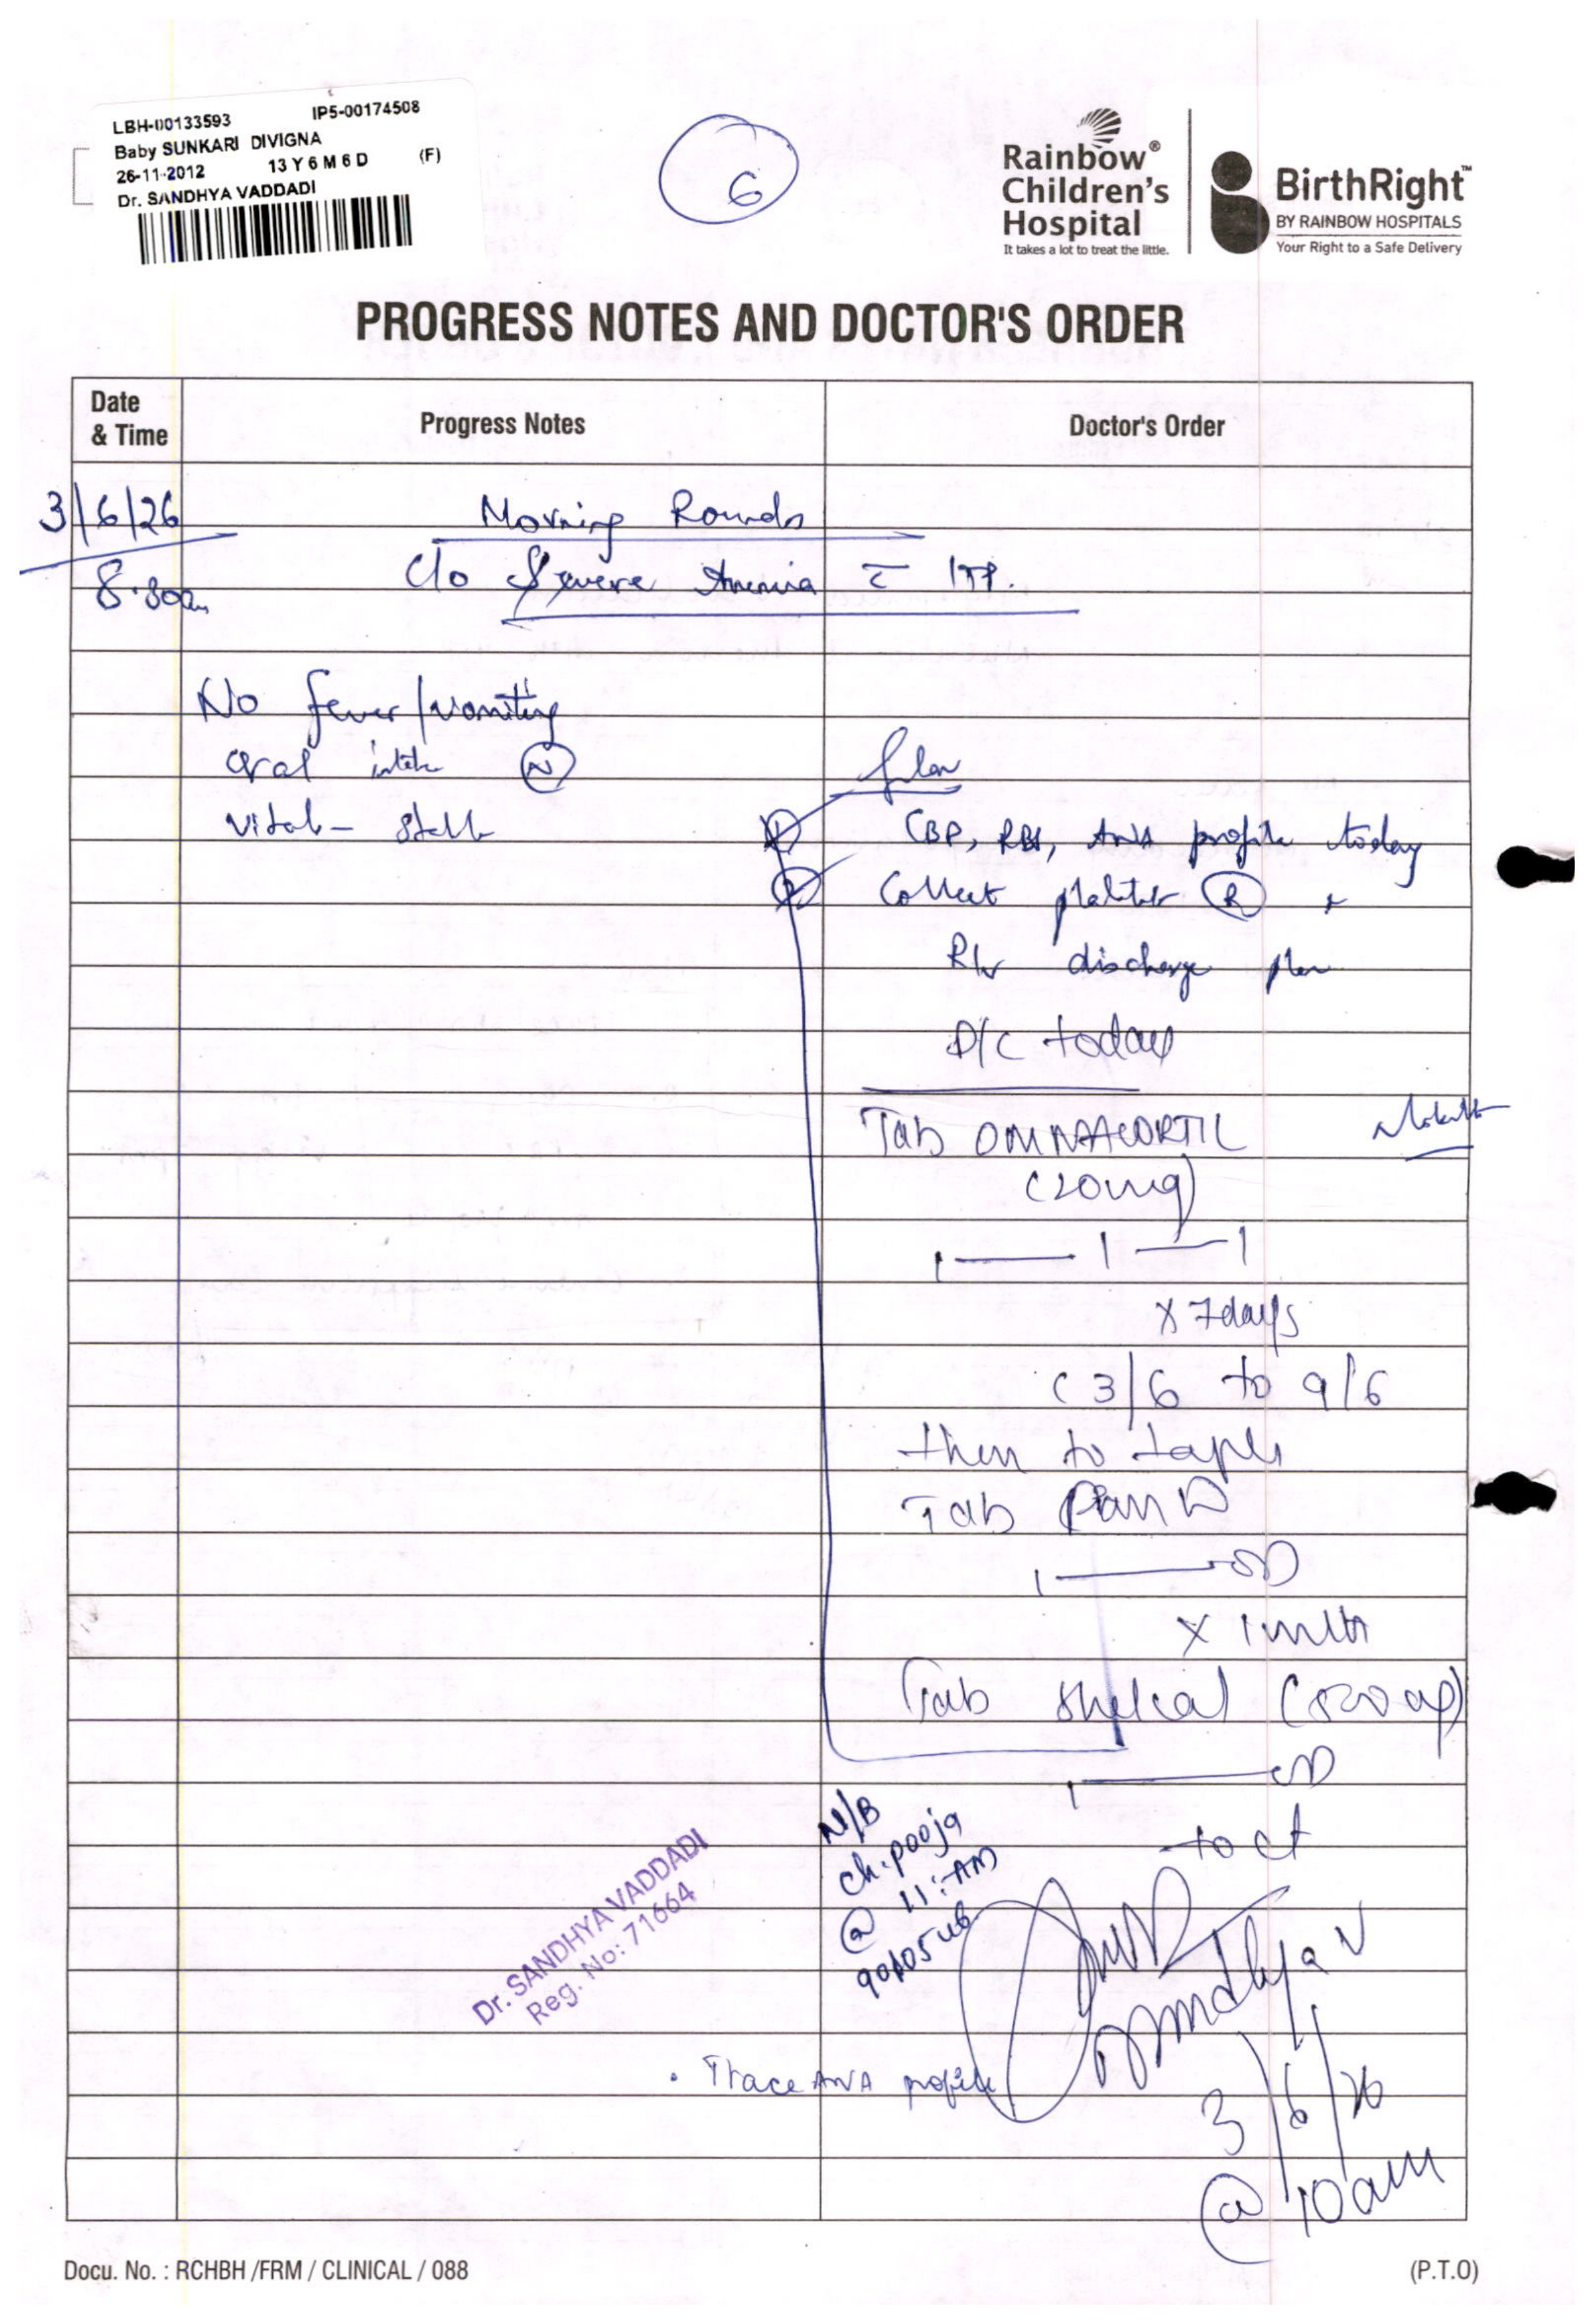 LBH-00133593 IP5-00174508
Baby SUNKARI DIVIGNA
26-11-2012 13 Y 6 M 6 D (F)
Dr. SANDHYA VADDADI
6
Rainbow®
Children's
Hospital
It takes a lot to treat the little.
BirthRight™
BY RAINBOW HOSPITALS
Your Right to a Safe Delivery
PROGRESS NOTES AND DOCTOR'S ORDER
Date
& Time
Progress Notes
Doctor's Order
3/6/26
8.30am
Morning Rounds
C/o Severe Anemia c ITP.
No fever/vomiting
oral intake N
Vitals - Stable
Plan
1 CBP, RBS, ANA profile today
2 Collect platelet R +
R/v discharge plan
D/C today
Tab OMNACORTIL
(20mg)
1 — 1 — 1
x 7days
(3/6 to 9/6
then to taper
Tab Pan D
1 — OD
x 1 mnth
Tab Shelcal (500 mg)
1 — OD
to ct
N/B
Ch. pooja
@ 11: AM
Sandhya V
3/6/26
@ 10am
Dr. SANDHYA VADDADI
Reg. No: 71664
• Trace ANA profile
Docu. No. : RCHBH /FRM / CLINICAL / 088
(P.T.O)